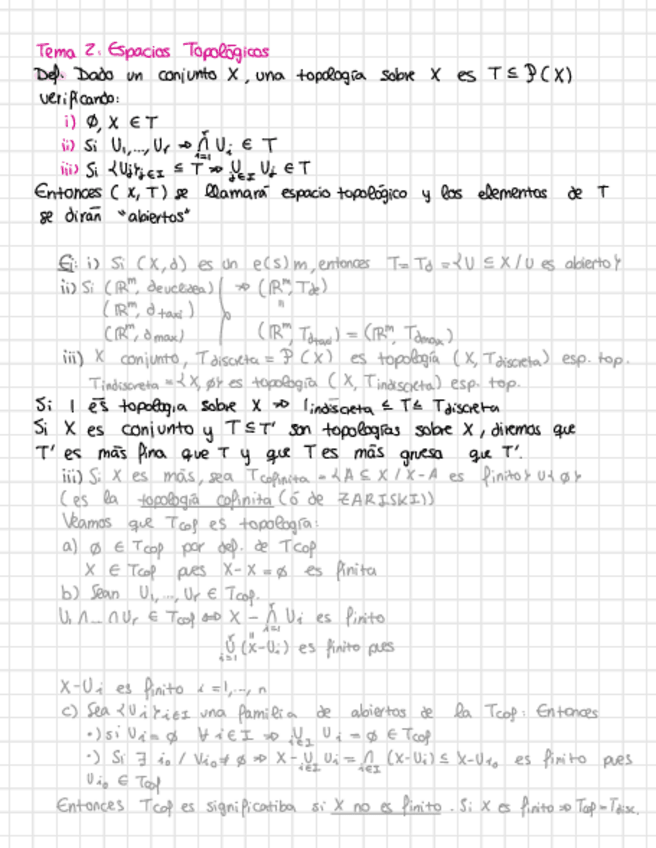 Tema 2: Espacios Topológicos
Def. Dado un conjunto X, una topología sobre X es T ⊆ P(X)
verificando:
i) ∅, X ∈ T
ii) Si U₁,..., Uᵣ ⇒ ⋂ᵢ₌₁ʳ Uᵢ ∈ T
iii) Si {Uᵢ}ᵢ∈I ⊆ T ⇒ ⋃ᵢ∈I Uᵢ ∈ T
Entonces (X, T) se llamará espacio topológico y los elementos de T
se dirán "abiertos"
Ej: i) Si (X,d) es un e(s)m, entonces T = T_d = {U ⊆ X / U es abierto}
ii) Si (ℝᵐ, deuclídea) ⇒ (ℝᵐ, T_de)
(ℝᵐ, d taxi) =
(ℝᵐ, dmax) (ℝᵐ, T_dtaxi) = (ℝᵐ, T_dmax)
iii) X conjunto, Tdiscreta = P(X) es topología (X, Tdiscreta) esp. top.
Tindiscreta = {X, ∅} es topología (X, Tindiscreta) esp. top.
Si T es topología sobre X ⇒ Tindiscreta ⊆ T ⊆ Tdiscreta
Si X es conjunto y T ⊆ T' son topologías sobre X, diremos que
T' es más fina que T y que T es más gruesa que T'.
iii) Si X es más, sea Tcofinita = {A ⊆ X / X-A es finito} ∪ {∅}
(es la topología cofinita (ó de ZARISKI))
Veamos que Tcof es topología:
a) ∅ ∈ Tcof por def. de Tcof
X ∈ Tcof pues X-X = ∅ es finita
b) Sean U₁,..., Uᵣ ∈ Tcof.
U₁ ∩...∩ Uᵣ ∈ Tcof ⇔ X - ⋂ᵢ₌₁ʳ Uᵢ es finito
=
⋃ᵢ₌₁ʳ (X-Uᵢ) es finito pues
X-Uᵢ es finito i = 1,..., n
c) Sea {Uᵢ}ᵢ∈I una familia de abiertos de la Tcof: Entonces
·) si Uᵢ = ∅ ∀ i ∈ I ⇒ ⋃ᵢ∈I Uᵢ = ∅ ∈ Tcof
·) Si ∃ i₀ / Uᵢ₀ ≠ ∅ ⇒ X - ⋃ᵢ∈I Uᵢ = ⋂ᵢ∈I (X-Uᵢ) ⊆ X-Uᵢ₀ es finito pues
Uᵢ₀ ∈ Tcof
Entonces Tcof es significatiba si X no es finito. Si X es finito ⇒ Tcof = Tdisc.